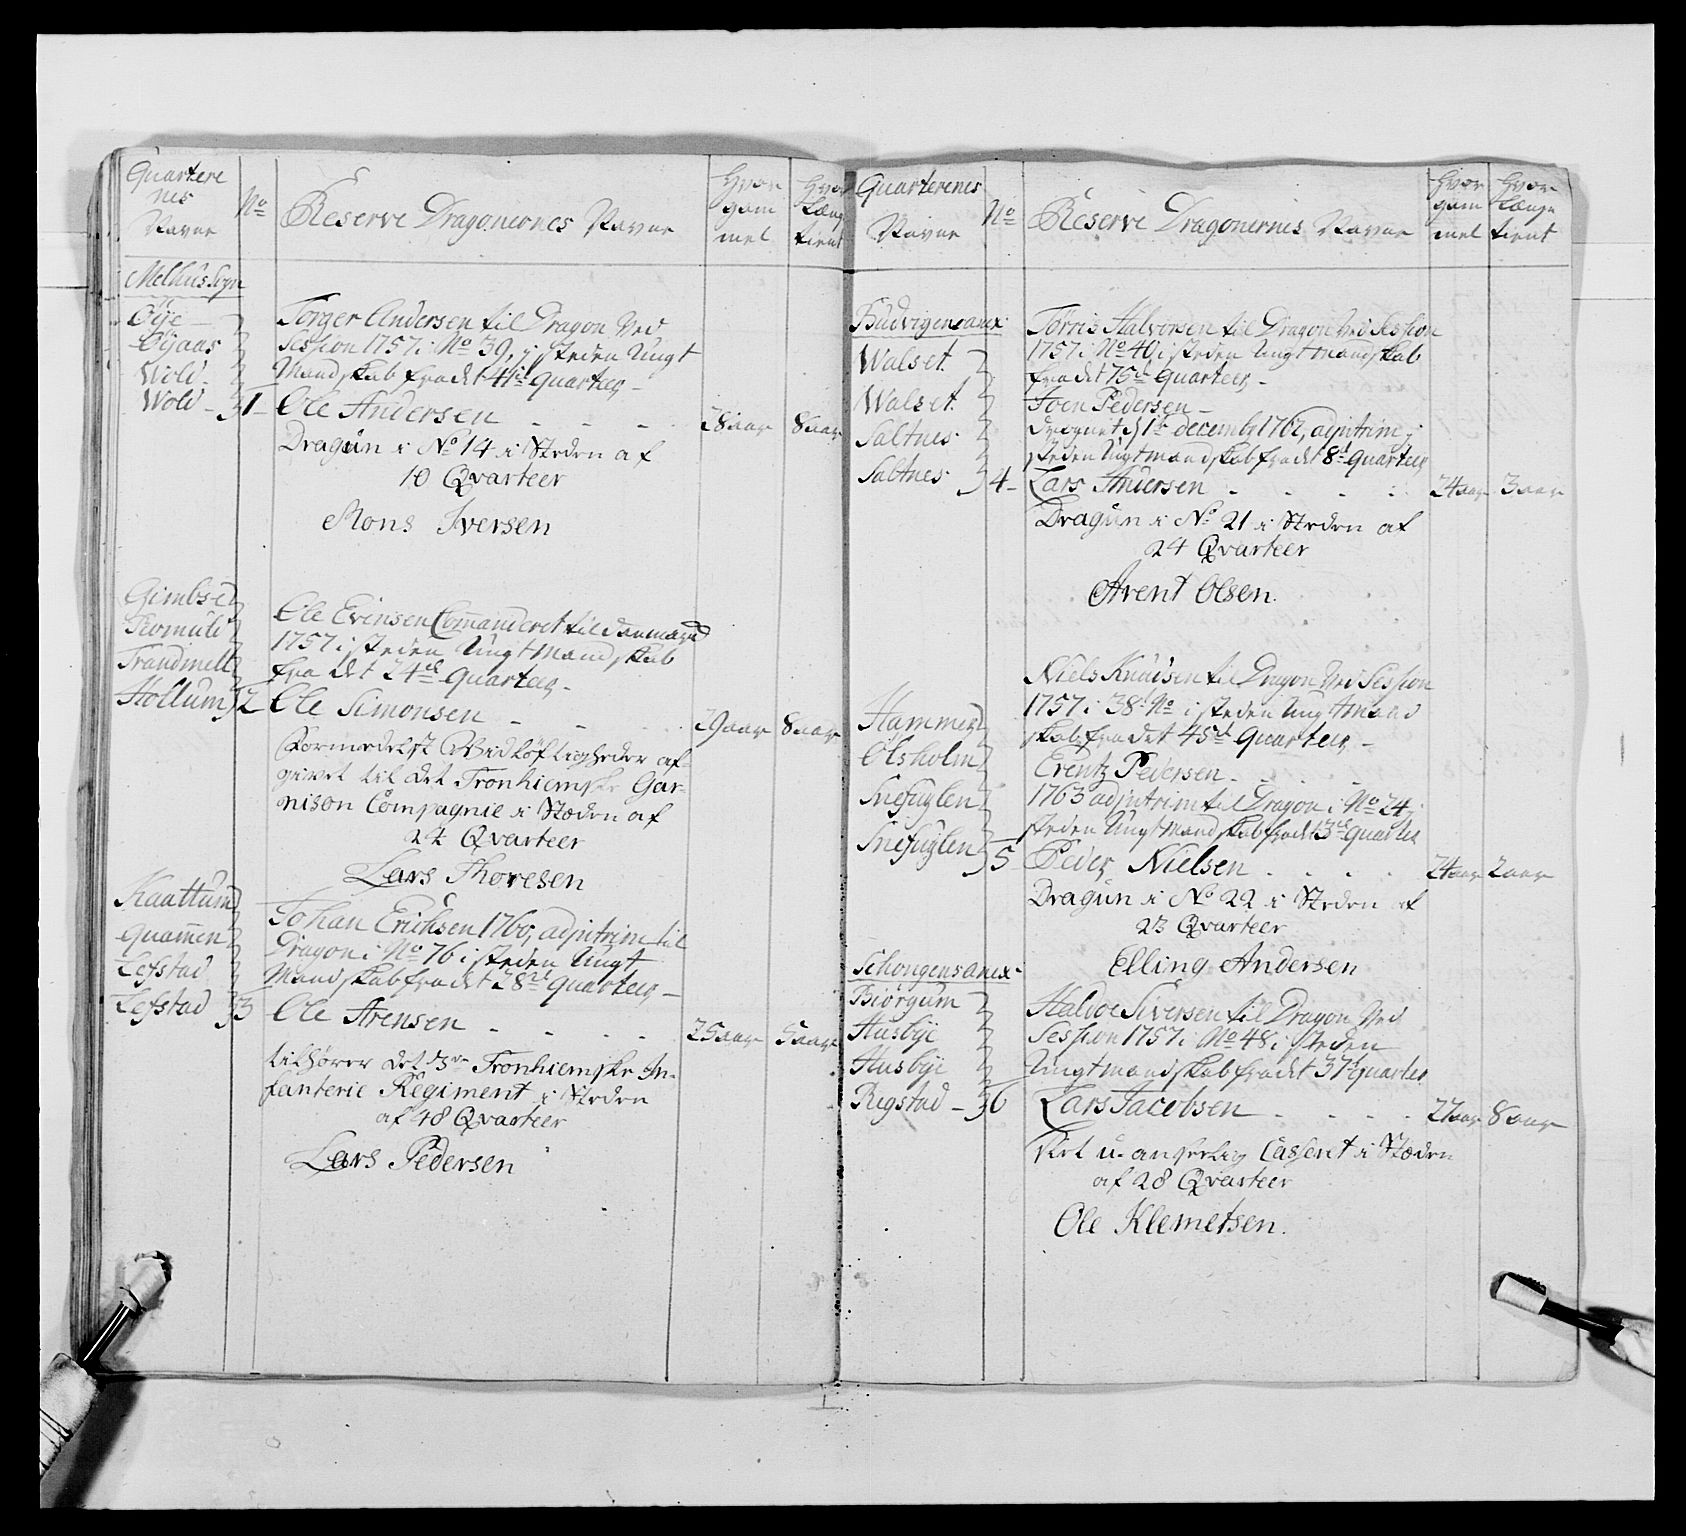 Quartere
nes
Navne
No
Reserve Dragonernes Navne
Hvor
gam
mel
Hvor
Længe
tient
Melhus Sogn
Øÿe
Øÿaas
Wold
Wold - 1
Torger Andersen til Dragon Ved
Session 1757 i No 39, i steden Ungt
Mandskab fra det 41de Quarteer -
Ole Andersen - - - 28 aar 8 aar
Dragŭn i No 14 i Steden af
10 Qvarteer
Mons Iversen
Gimbse
Tromuld
Trandmelt
Hollum 2
Ole Evensen Comanderet til Danmarck
1757 i steden Ungt Mandskab
fra det 24de Quarteer -
Ole Simonsen - - - 29 aar 8 aar
Formedelst Vidløftigheder af-
givet til det Tronhiemske Gar-
nison Compagnie i Stæden af
24 Qvarteer
Lars Thoresen
Kaattum
Quamen
Lefstad
Lefstad 3
Johan Erichsen 1760, adjutrim til
Dragon i No 76 i steden Ungt
Mandskab fra det 28de Quarteer -
Ole Arensen - - - 25 aar 5 aar
tilhører det 3de Tronhiemske In-
fanterie Regiment i Steden
af 48 Qvarteer
Lars Pedersen
Quarterenes
Navne
No
Reserve Dragonernes Navne
Hvor
gam
mel
Hvor
Længe
tient
Budvigens anex
Walset
Walset
Saltnes
Saltnes 4 -
Tørris Halvorsen til Dragon Ved Session
1757 i No 40 i steden Ungt Mandskab
fra det 75de Quarteer -
Joen Pedersen -
dragnet d 1te decembr 1762, adjutrim i
steden Ungt Mandskab fra det 8de Quarteer
Lars Andersen - - - 24 aar 3 aar
Dragŭn i No 21 i Steden af
24 Qvarteer
Arent Olsen.
Hammer
Olsholm
Snefuglen
Snefuglen 5
Niels Knudsen til Dragon Ved Session
1757 i 38de No i steden Ungt Mand
skab fra det 45de Quarteer -
Erentz Pedersen - - -
1763 adjutrim til Dragon i No 24 i
steden Ungt Mandskab fra det 13de Quarteer
Peder Nielsen - - - 24 aar 2 aar
Dragŭn i No 22 i Steden af
23 Qvarteer
Elling Andersen
Schougens anex
Biørgum
Husbÿe
Husbÿe
Rigstad - 6
Haldoe Siversen til Dragon Ved
Session 1757 i No 48 i steden
Ungt mandskab fra det 37de Quarteer
Lars Jacobsen - - - 27 aar 8 aar
Casseret i Stæden
af 28 Qvarteer
Ole Klemetsen.